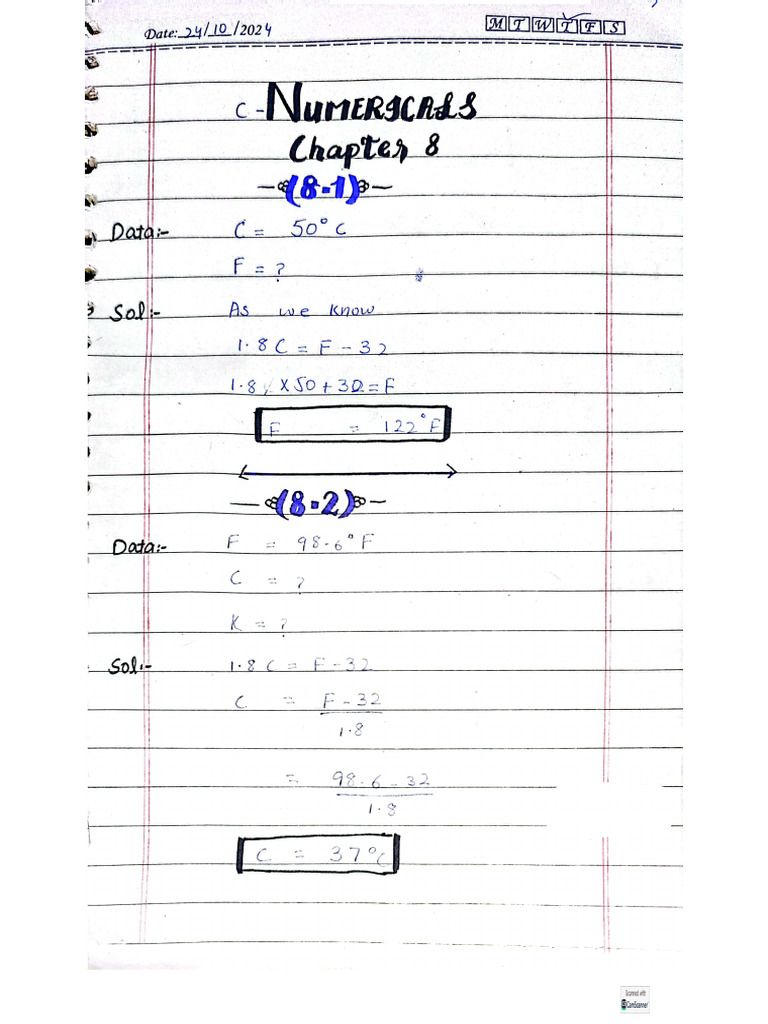 Date: 24/10/2024 M T W T F S
C - NUMERICALS
Chapter 8
(8.1)
Data:- C = 50°C
F = ?
Sol:- As we know
1.8C = F - 32
1.8 X 50 + 32 = F
F = 122°F
(8.2)
Data:- F = 98.6°F
C = ?
K = ?
Sol:- 1.8C = F - 32
C = F - 32
1.8
= 98.6 - 32
1.8
C = 37°C
Scanned with
CamScanner